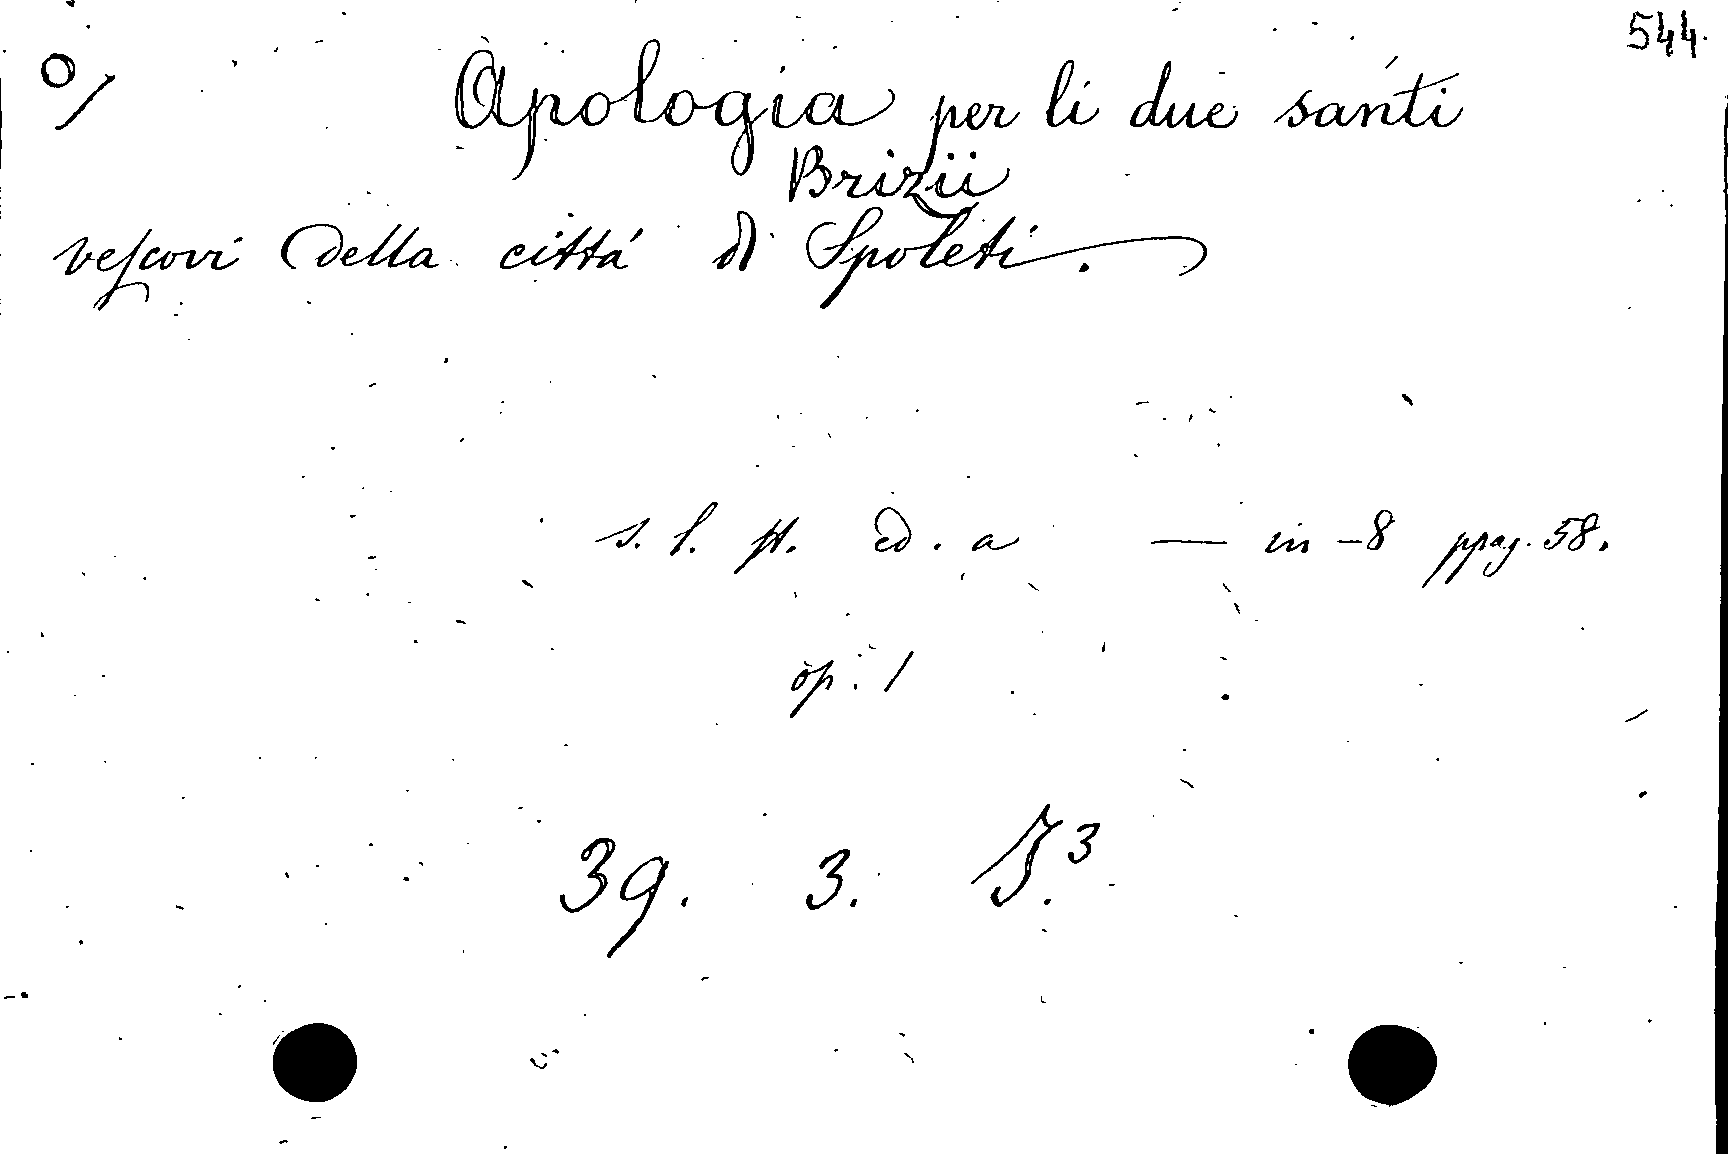 544.
O/ Apologia per li due santi
Brizii
vescovi della cittá di Spoleti.
s. l. st. ed. a — in-8 ppag. 58.
op. 1
39. 3. J.3